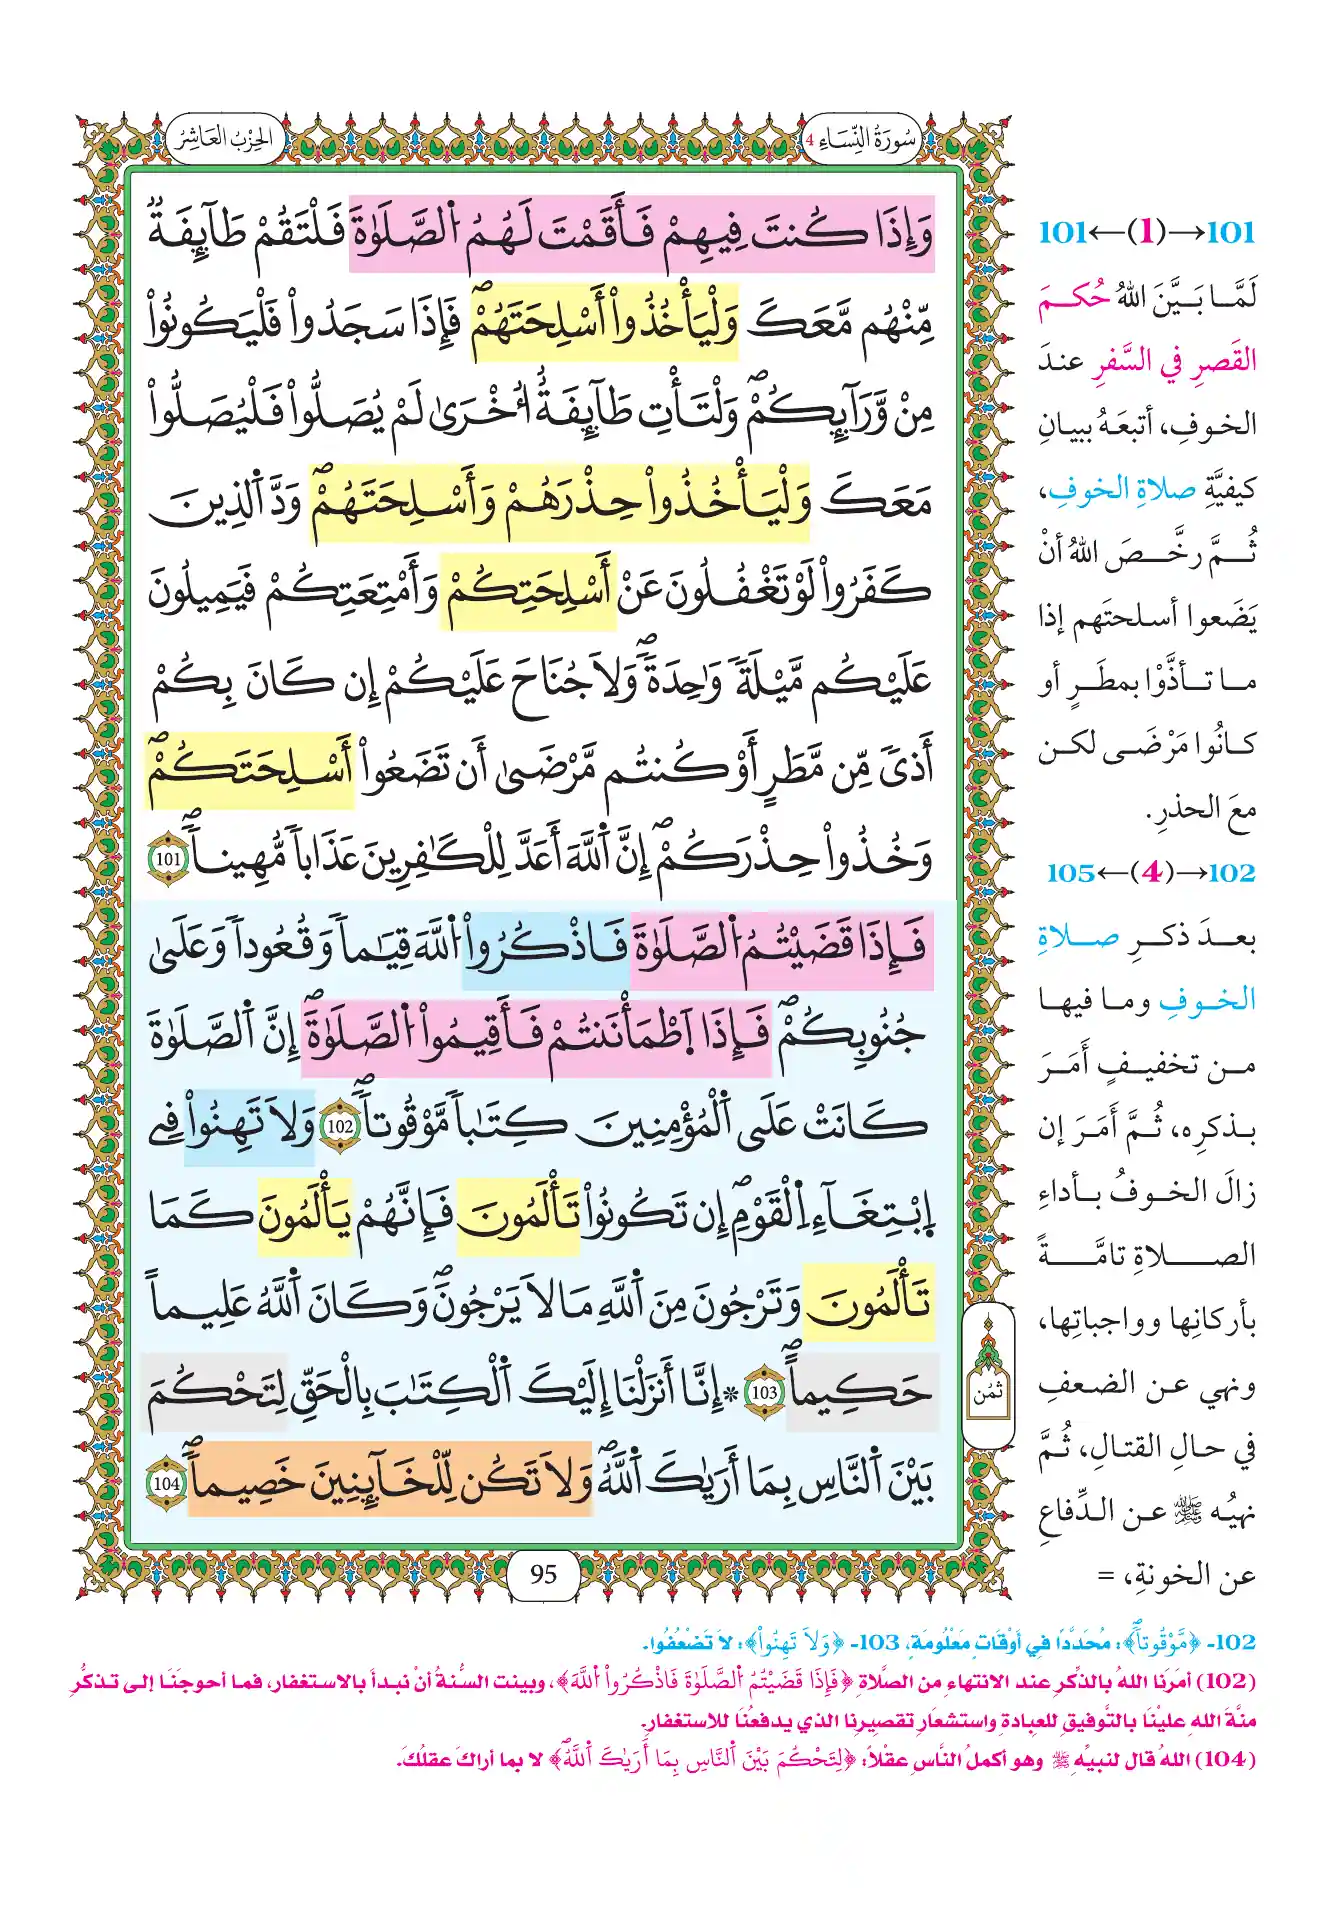 سُورَةُ النِّسَاءِ 4
الحِزْبُ العَاشِرُ
وَإِذَا كُنتَ فِيهِمْ فَأَقَمْتَ لَهُمُ اُ۬لصَّلَوٰةَ فَلْتَقُمْ طَآئِفَةٞ
مِّنْهُم مَّعَكَ وَلْيَأْخُذُوٓاْ أَسْلِحَتَهُمْۖ فَإِذَا سَجَدُواْ فَلْيَكُونُواْ
مِنْ وَّرَآئِكُمْۖ وَلْتَأْتِ طَآئِفَةٌ اُخْرَىٰ لَمْ يُصَلُّواْ فَلْيُصَلُّواْ
مَعَكَ وَلْيَأْخُذُواْ حِذْرَهُمْ وَأَسْلِحَتَهُمْۖ وَدَّ اَ۬لذِينَ
كَفَرُواْ لَوْ تَغْفُلُونَ عَنْ أَسْلِحَتِكُمْ وَأَمْتِعَتِكُمْ فَيَمِيلُونَ
عَلَيْكُم مَّيْلَةٗ وَٰحِدَةٗۖ وَلَا جُنَاحَ عَلَيْكُمْ إِن كَانَ بِكُمْ
أَذىٗ مِّن مَّطَرٍ أَوْ كُنتُم مَّرْضَىٰ أَن تَضَعُوٓاْ أَسْلِحَتَكُمْۖ
وَخُذُواْ حِذْرَكُمْۖ إِنَّ اَ۬للَّهَ أَعَدَّ لِلْكَٰفِرِينَ عَذَاباٗ مُّهِيناٗۖ 101
فَإِذَا قَضَيْتُمُ اُ۬لصَّلَوٰةَ فَاذْكُرُواْ اُ۬للَّهَ قِيَٰماٗ وَقُعُوداٗ وَعَلَىٰ
جُنُوبِكُمْۖ فَإِذَا اَ۪طْمَأْنَنتُمْ فَأَقِيمُواْ اُ۬لصَّلَوٰةَۖ إِنَّ اَ۬لصَّلَوٰةَ
كَانَتْ عَلَى اَ۬لْمُؤْمِنِينَ كِتَٰباٗ مَّوْقُوتاٗۖ 102 وَلَا تَهِنُواْ فِے
اِ۪بْتِغَآءِ اِ۬لْقَوْمِۖ إِن تَكُونُواْ تَأْلَمُونَ فَإِنَّهُمْ يَأْلَمُونَ كَمَا
تَأْلَمُونَ وَتَرْجُونَ مِنَ اَ۬للَّهِ مَا لَا يَرْجُونَۖ وَكَانَ اَ۬للَّهُ عَلِيماً
حَكِيماًۖ 103 * إِنَّا أَنزَلْنَا إِلَيْكَ اَ۬لْكِتَٰبَ بِالْحَقِّ لِتَحْكُمَ
بَيْنَ اَ۬لنَّاسِ بِمَا أَرَىٰكَ اَ۬للَّهُۖ وَلَا تَكُن لِّلْخَآئِنِينَ خَصِيماٗۖ 104
ثُمُن
95
101←(1)→101
لَمَّا بَيَّنَ اللهُ حُكمَ
القَصرِ في السَّفرِ عندَ
الخوفِ، أتبعَهُ ببيانِ
كيفيَّةِ صلاةِ الخوفِ،
ثُمَّ رخَّصَ اللهُ أنْ
يَضَعوا أسلحتَهم إذا
ما تأذَّوْا بمطَرٍ أو
كانُوا مَرْضَى لكن
معَ الحذرِ.
102←(4)→105
بعدَ ذكرِ صلاةِ
الخوفِ وما فيها
من تخفيفٍ أَمَرَ
بذكرِه، ثُمَّ أَمَرَ إن
زالَ الخوفُ بأداءِ
الصلاةِ تامَّةً
بأركانِها وواجباتِها،
ونهي عن الضعفِ
في حالِ القتالِ، ثُمَّ
نهيُه ﷺ عن الدِّفاعِ
عن الخونةِ، =
102- ﴿مَّوْقُوتاٗۖ﴾: مُحَدَّدًا فِي أَوْقَاتٍ مَعْلُومَةٍ، 103- ﴿وَلَا تَهِنُواْ﴾: لَا تَضْعُفُوا.
(102) أمرَنا اللهُ بالذِّكرِ عند الانتهاءِ من الصَّلاةِ ﴿فَإِذَا قَضَيْتُمُ اُ۬لصَّلَوٰةَ فَاذْكُرُواْ اُ۬للَّهَ﴾، وبينت السُّنةُ أنْ نبدأ بالاستغفار، فما أحوجَنَا إلى تذكُّر
منَّة اللهِ علينْا بالتَّوفيقِ للعبادةِ واستشعارِ تقصيرِنا الذي يدفعُنَا للاستغفارِ.
(104) اللهُ قال لنبيِّهِ ﷺ وهو أكملُ النَّاسِ عقلاً: ﴿لِتَحْكُمَ بَيْنَ اَ۬لنَّاسِ بِمَا أَرَىٰكَ اَ۬للَّهُۖ﴾ لا بما أراكَ عقلُكَ.